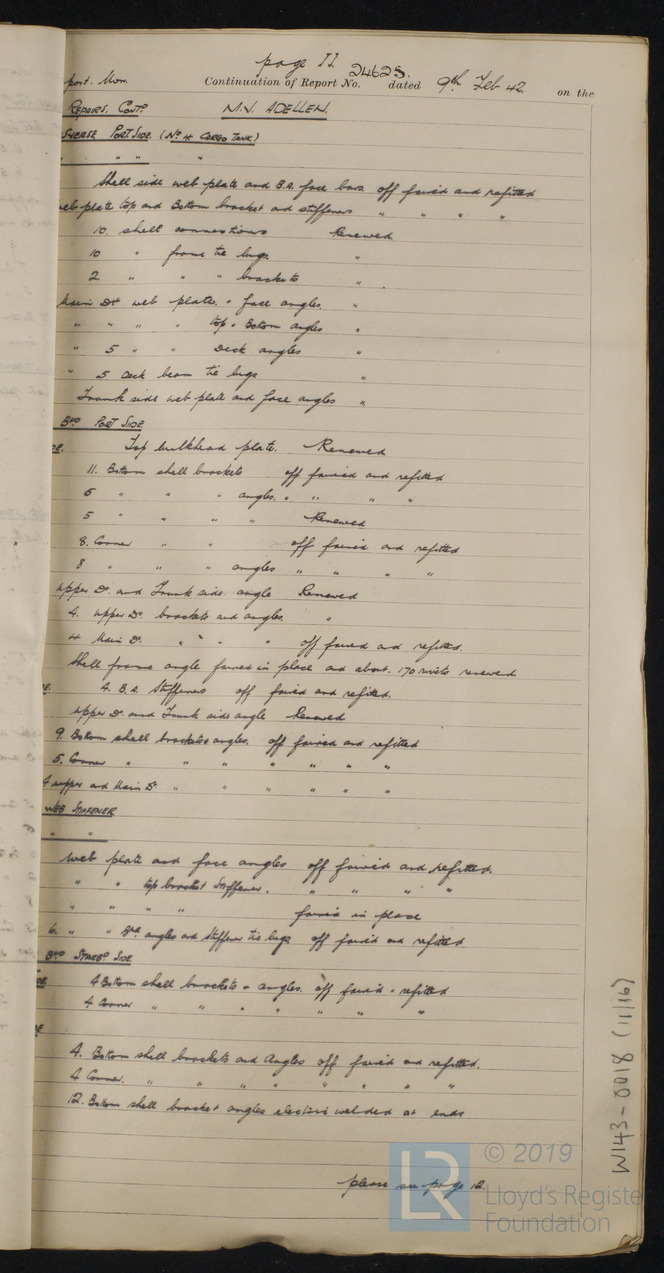 page 11
port. Mom. Continuation of Report No. 24625. dated 9th Feb 42 on the
Repairs. Contd M.V. ADELLEN.
SVERSE PORT SIDE. (No 4 CARGO TANK)
" " " "
Shell side web plate and B.A. face bars off faired and refitted
web plate top and Bottom bracket and stiffeners " " " "
10 shell connections Renewed
10 " frame tie lugs "
2 " " " brackets "
Main Dk web plate " face angles "
" " " " top " Bottom angles "
" 5 " " Deck angles "
" 5 Deck beam tie lugs "
Trunk side web plate and face angles "
BHD PORT SIDE
DE. Top bulkhead plate. Renewed
11. Bottom shell brackets off faired and refitted
6 " " " angles. " " " "
5 " " " " Renewed
8. Corner " " off faired and refitted
8 " " " angles " " " "
upper Dk and Trunk side angle Renewed
4. upper Dk. brackets and angles. "
4 Main D. " " " " off faired and refitted.
Shell frame angle faired in place and about. 170 rivets renewed
DE. 4. B.A. Stiffeners off faired and refitted.
upper D. and Trunk side angle Renewed
9. Bottom shell brackets & angles. off faired and refitted
5. Corner " " " " " " "
4 upper and Main Dk " " " " " "
WEB STIFFENER
" "
Web plate and face angles off faired and refitted.
" " top bracket Stiffener. " " " "
" " " " faired in place
6. " " Bkt angles and Stiffener tie lugs off faired and refitted
BHD STARBD SIDE
DE 4 Bottom shell brackets " angles. off faired " refitted
4 Corner " " " " " " "
DE
4. Bottom shell brackets and Angles off faired and refitted.
4 Corner. " " " " " " " "
12. Bottom shell bracket angles electric welded at ends
please see page 12.
W143-0018 (11/16)
LR © 2019
Lloyd's Registe
Foundation